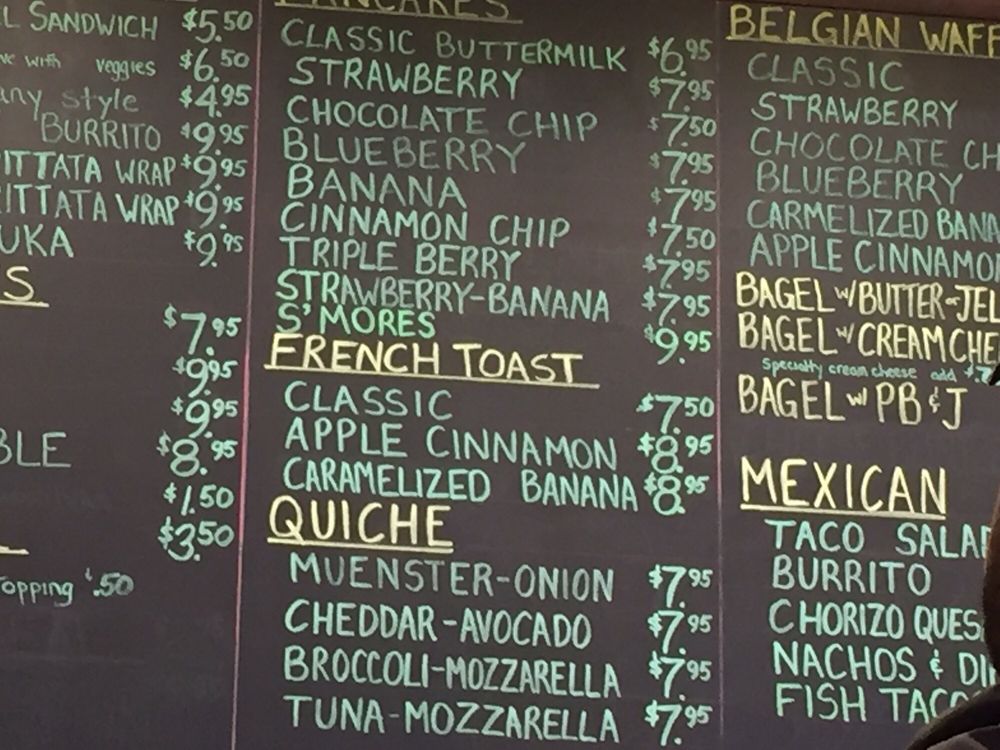 L SANDWICH $5.50
with veggies $6.50
any style $4.95
BURRITO $9.95
ITTATA WRAP $9.95
ITTATA WRAP $9.95
UKA $9.95
S
$7.95
$9.95
$9.95
BLE $8.95
$1.50
$3.50
opping $.50
PANCAKES
CLASSIC BUTTERMILK $6.95
STRAWBERRY $7.95
CHOCOLATE CHIP $7.50
BLUEBERRY $7.95
BANANA $7.95
CINNAMON CHIP $7.50
TRIPLE BERRY $7.95
STRAWBERRY-BANANA $7.95
S'MORES $9.95
FRENCH TOAST
CLASSIC $7.50
APPLE CINNAMON $8.95
CARAMELIZED BANANA $8.95
QUICHE
MUENSTER-ONION $7.95
CHEDDAR-AVOCADO $7.95
BROCCOLI-MOZZARELLA $7.95
TUNA-MOZZARELLA $7.95
BELGIAN WAFF
CLASSIC
STRAWBERRY
CHOCOLATE CH
BLUEBERRY
CARMELIZED BANA
APPLE CINNAMO
BAGEL W/BUTTER-JEL
BAGEL W/CREAM CHE
Specialty cream cheese add $.7
BAGEL W/ PB & J
MEXICAN
TACO SALAD
BURRITO
CHORIZO QUES
NACHOS & DI
FISH TACO